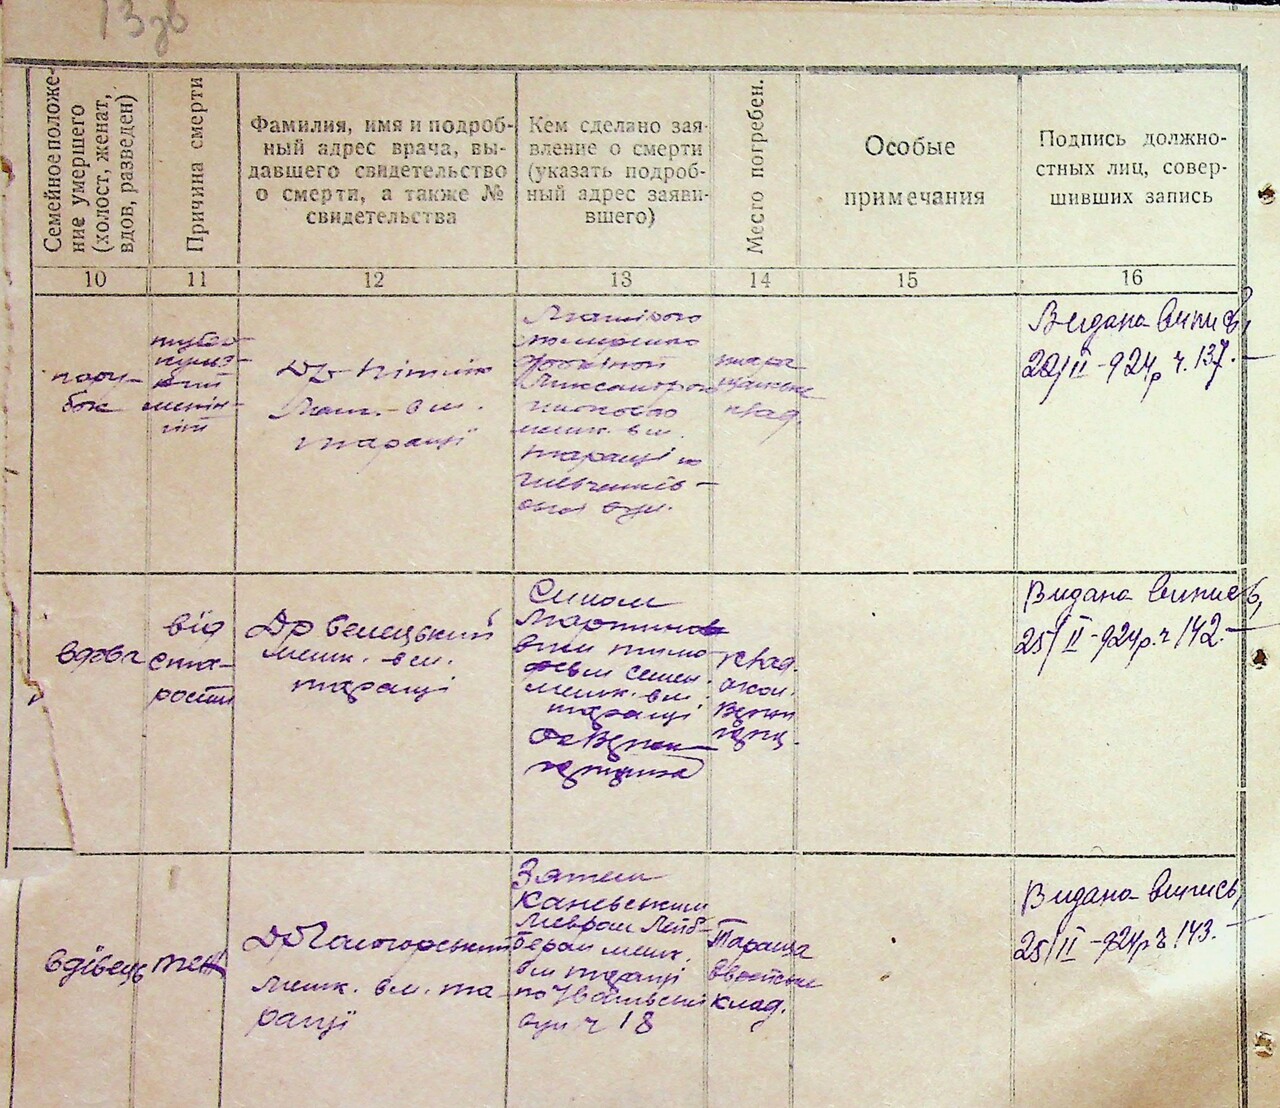 13зв
Семейное положе-
ние умершего
(холост, женат,
вдов, разведен)
Причина смерти
Фамилия, имя и подроб-
ный адрес врача, вы-
давшего свидетельство
о смерти, а также №
свидетельства
Кем сделано зая-
вление о смерти
(указать подроб-
ный адрес заяви-
вшего)
Место погребен.
Особые
примечания
Подпись должно-
стных лиц, совер-
шивших запись
10
11
12
13
14
15
16
пару-
бок
тубер
кульз-
ний
менін-
гіт
Др
Меш. в м.
таращі
мешк. в м.
Таращі по
вул.
тара
щанське
клад.
Видана випись,
22/II-924р ч. 137.
вдова
від
ста-
рости
Др Белецький
мешк. в м.
таращі
Сином
мешк. в м.
таращі
клад.
Видана випись,
25/II-924р. ч 142.
вдівець
Др
мешк. в м. та-
ращі
Зятем
Каневським
мешк.
в м таращі
по
вул ч 18
Тараща
клад.
Видана випись,
25/II-924р ч 143.